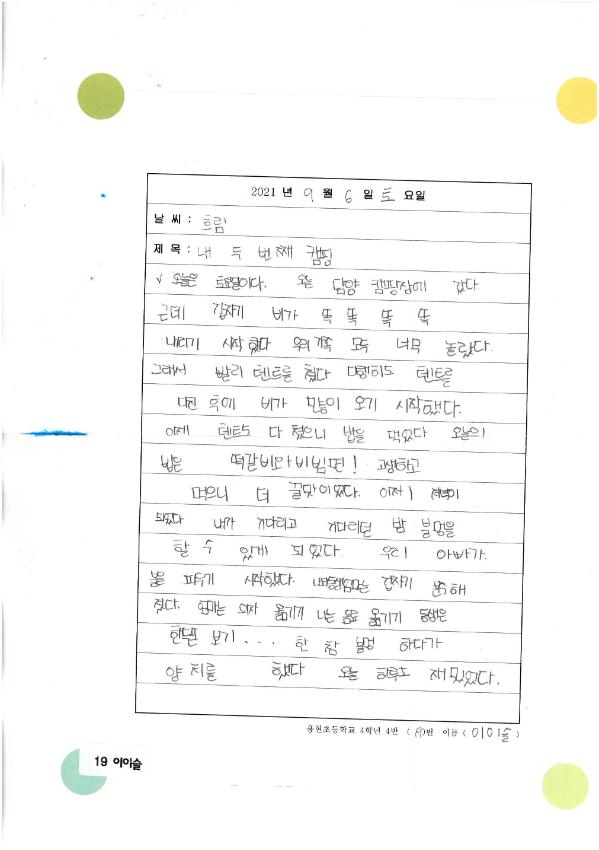 2021 년 9 월 6 일 토 요일
날 씨 : 흐림
제 목 : 내 두 번째 캠핑
√ 오늘은 토요일이다. 오늘 담양 캠핑장에 갔다.
근데 갑자기 비가 뚝 뚝 뚝 뚝
내리기 시작했다 우리 가족 모두 너무 놀랐다.
그래서 빨리 텐트를 쳤다 다행히도 텐트를
다친 후에 비가 많이 오기 시작했다.
이제 텐트도 다 쳤으니 밥을 먹었다 오늘의
밥은 떡갈비와 비빔면! 고생하고
먹으니 더 꿀맛이었다. 이제 저녁이
되었다 내가 기다리고 기다리던 밤 불멍을
할 수 있게 되었다. 우리 아빠가.
불을 피우기 시작했다. 갑자기 해
졌다. 엄마는 의자 옮기기 나는 옮기기 동생은
보기... 한 참 불멍 하다가
양치를 했다 오늘 하루도 재밌었다.
용천초등학교 4학년 4반 (19)번 이름 (이아슬)
19 이아슬